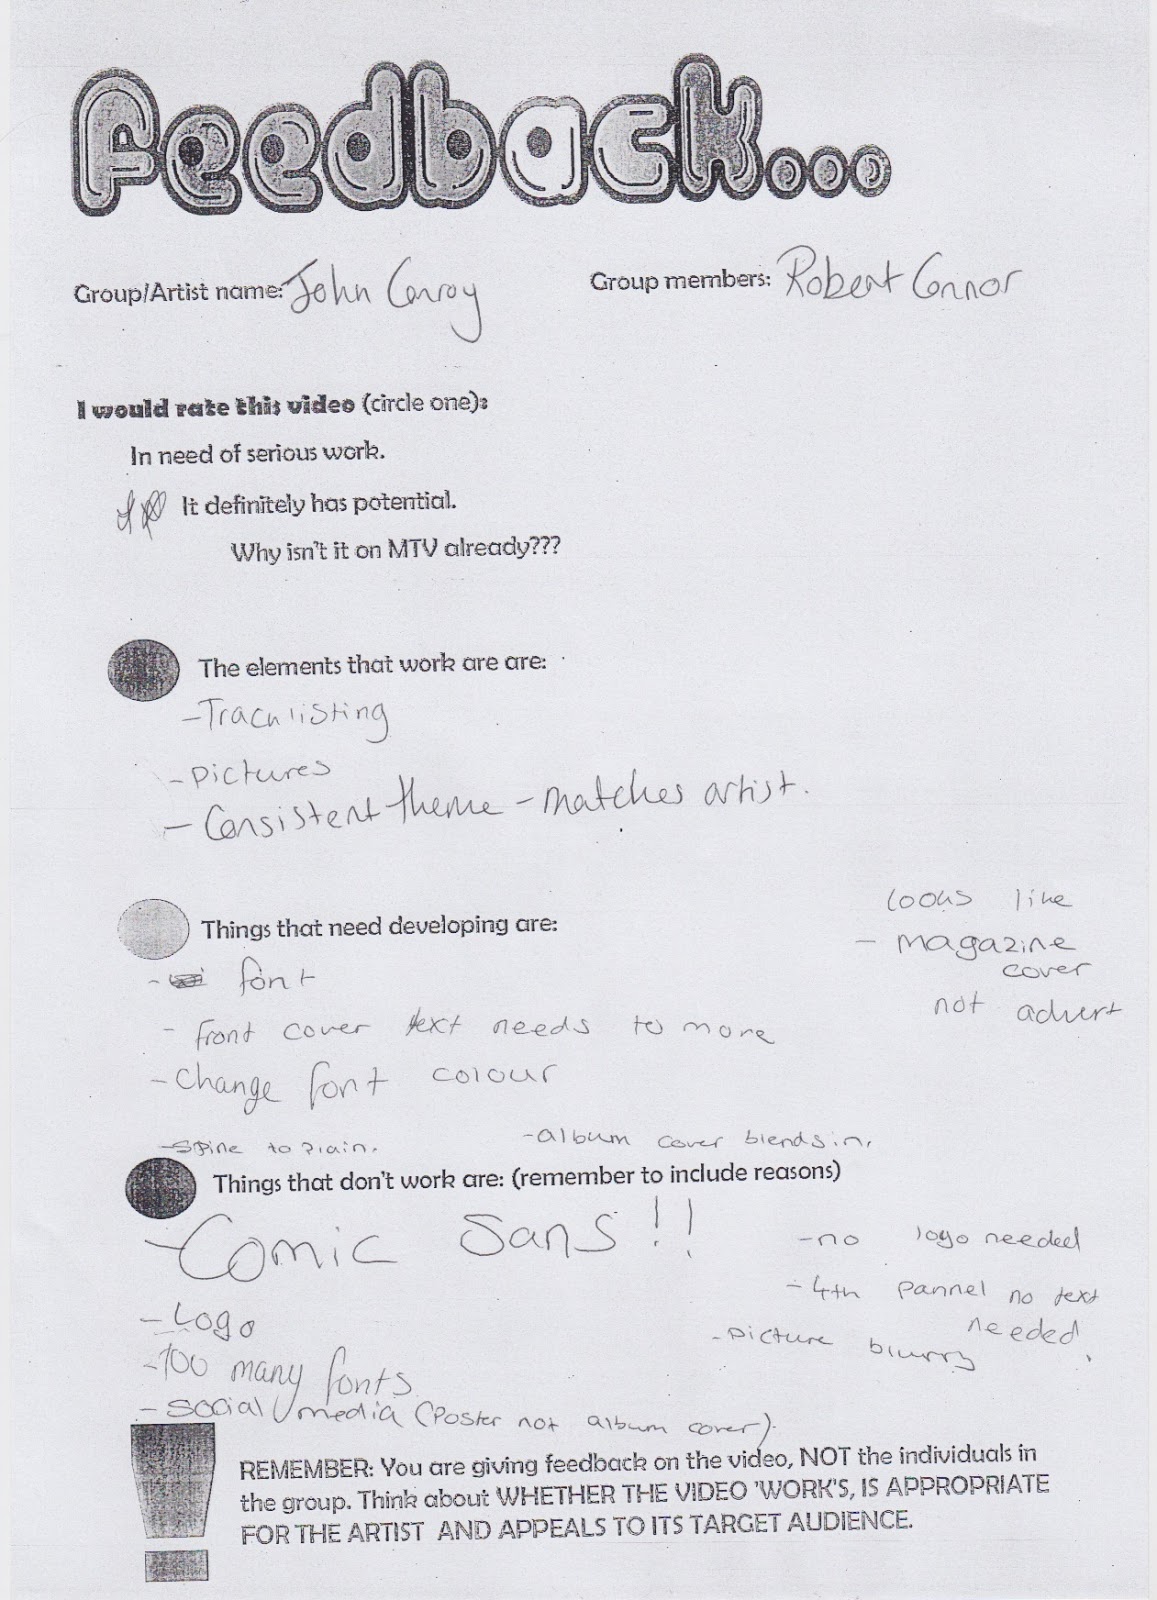 Feedback...
Group/Artist name: John Conroy
Group members: Robert Connor
I would rate this video (circle one):
In need of serious work.
It definitely has potential.
Why isn't it on MTV already???
The elements that work are are:
- Tracklisting
- pictures
- Consistent theme - matches artist.
Things that need developing are:
- font
- front cover text needs to more
- change font colour
- spine to plain.
- album cover blends in.
looks like
- magazine
cover
not advert
Things that don't work are: (remember to include reasons)
- Comic Sans!!
- Logo
- Too many fonts
- social media (Poster not album cover).
- no logo needed
- 4th pannel no text
needed.
- picture blurry
REMEMBER: You are giving feedback on the video, NOT the individuals in
the group. Think about WHETHER THE VIDEO 'WORK'S, IS APPROPRIATE
FOR THE ARTIST AND APPEALS TO ITS TARGET AUDIENCE.